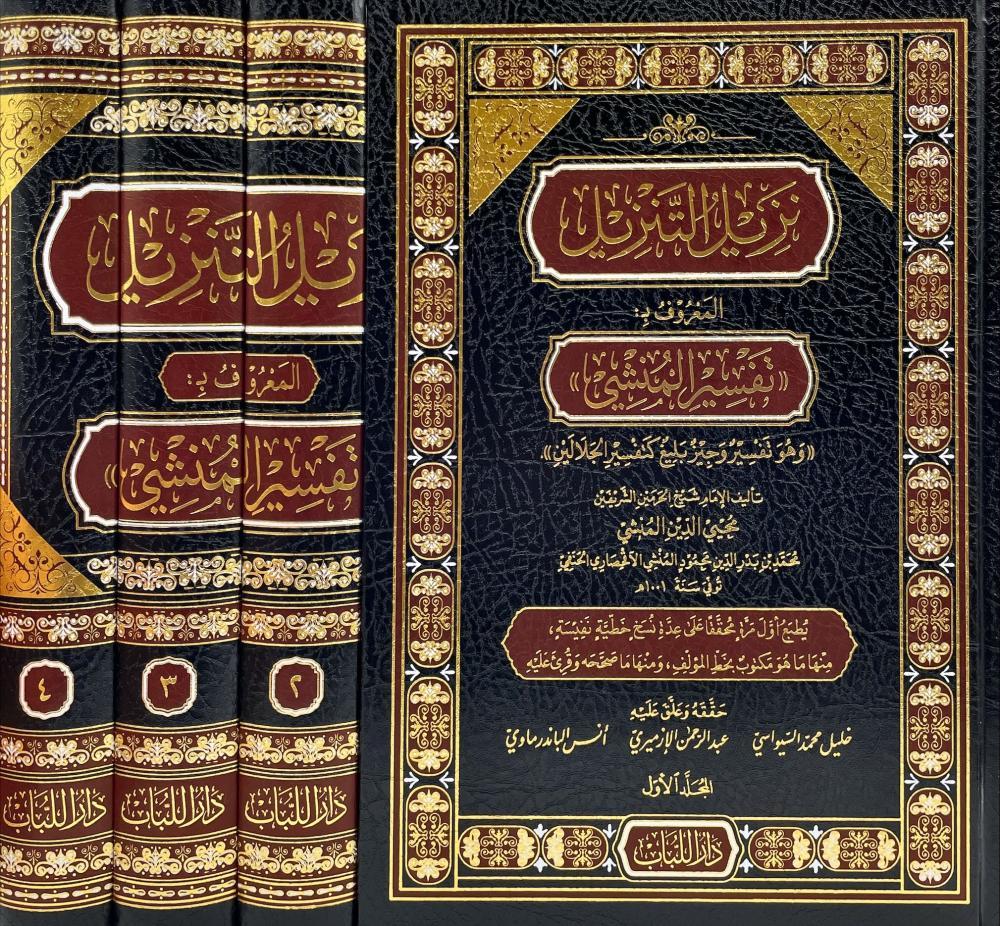 نزيل التنزيل
المَعْرُوْفُ بِـ:
«تَفْسِيْرِ الْمُنْشِيْ»
«وَهُوَ تَفْسِيْرٌ وَجِيْزٌ بَلِيْغٌ كَتَفْسِيْرِ الجَلَالَيْنِ».
تأليف الإمام شيخ الحرمين الشريفين
محيي الدين المنشي
محمد بن بدر الدين محمود المنشي الآقحصاري الحنفي
توفي سنة ١٠٠١هـ
يُطبع أوّل مرّة محققًا على عدّة نسخ خطيّة نفيسة،
منها ما هو مكتوب بخطّ المؤلّف، ومنها ما صحّحه وقُرئ عليه
حقّقه وعلّق عليه
خليل محمد السيواسي عبد الرحمن الإزميري أنس الباندرماوي
المجلّد الأوّل
دار اللباب
زيل التنزيل
المَعْرُوْفُ بِـ:
تَفْسِيْرِ الْمُنْشِيْ»
٢
٣
٤
دار اللباب
دار اللباب
دار اللباب